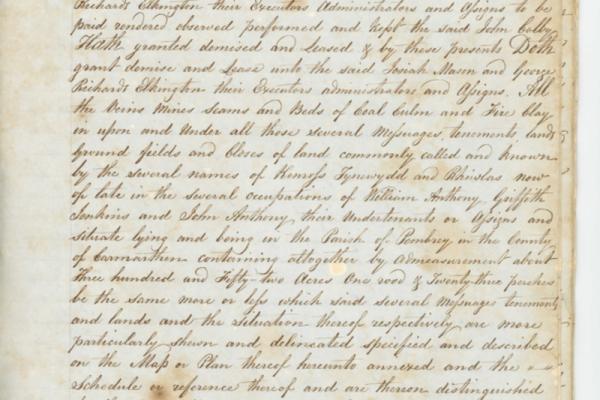 Richards Elkington their Executors Administrators and Assigns to be
paid rendered observed performed and kept the said John Colby
Hath granted demised and Leased & by these presents Doth
grant demise and Lease unto the said Josiah Mason and George
Richards Elkington their Executors administrators and Assigns. All
the Veins Mines Seams and Beds of Coal Culm and Fire Clay
in upon and Under all those several Messuages, tenements, lands
Ground fields and Closes of land commonly called and known
by the several names of Tynewydd and now
or late in the several occupations of William Anthony, Griffith
Jenkins and John Anthony, their Undertenants or Assigns and
situate lying and being in the Parish of Pembrey in the County
of Carmarthen containing altogether by Admeasurement about
Three hundred and Fifty two Acres One rood & Twenty three perches
be the same more or less which said several Messuages tenements
and lands and the situation thereof respectively are more
particularly shewn and delineated specified and described
on the Map or Plan thereof hereunto annexed and the
Schedule or reference thereof and are thereon distinguished